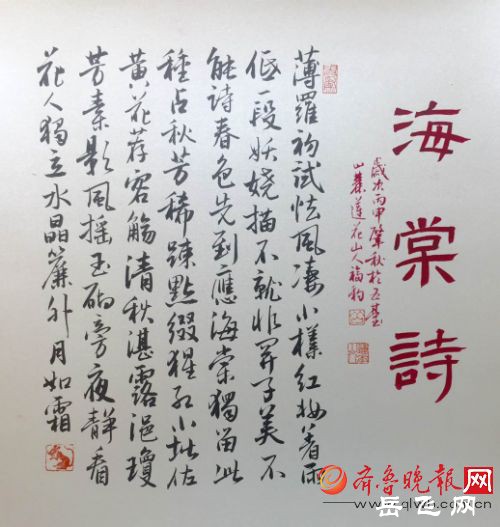 海棠詩
歲次丙申肇秋於五臺
山麓蓮花山人福
薄羅初試怯風淒小樣紅妝著雨
低一段妖嬈描不就非關子美不
能詩春色先到應海棠獨留此
種占秋芳稀疎點綴猩紅小堪佐
黄花荐客觴清秋湛露浥瓊
芳素影風搖玉砌旁夜靜看
花人獨立水晶簾外月如霜
齐鲁晚报网
岳飞网